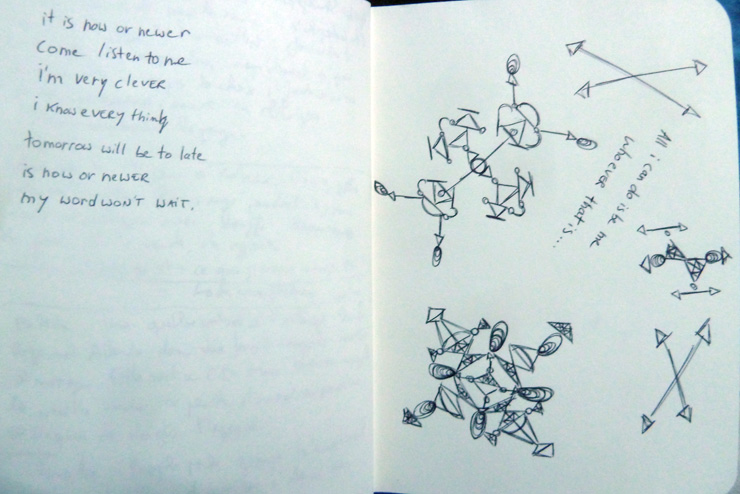 it is now or newer
come listen to me
i'm very clever
i know every thing
tomorrow will be to late
is now or newer
my word won't wait.
All i can do is be me
who ever that is...